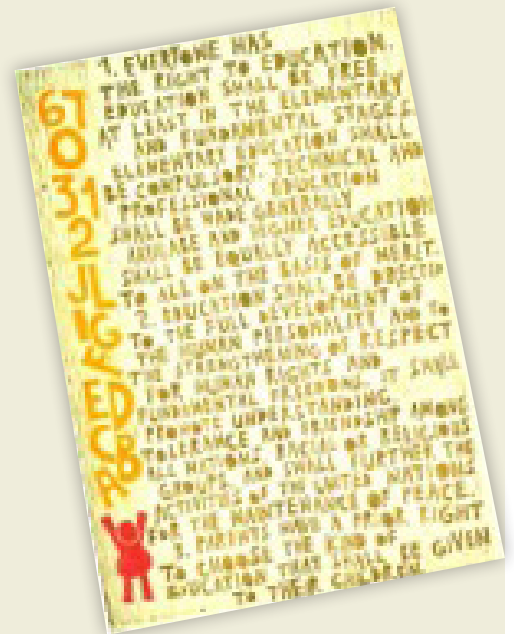 1. EVERYONE HAS
THE RIGHT TO EDUCATION.
EDUCATION SHALL BE FREE
AT LEAST IN THE ELEMENTARY
AND FUNDAMENTAL STAGES.
ELEMENTARY EDUCATION SHALL
BE COMPULSORY. TECHNICAL AND
PROFESSIONAL EDUCATION
SHALL BE MADE GENERALLY
AND HIGHER EDUCATION
SHALL BE EQUALLY ACCESSIBLE
TO ALL ON THE BASIS OF MERIT.
2. EDUCATION SHALL BE DIRECTED
TO THE FULL DEVELOPMENT OF
THE HUMAN PERSONALITY AND TO
THE STRENGTHENING OF RESPECT
FOR HUMAN RIGHTS AND
FUNDAMENTAL FREEDOMS. IT SHALL
PROMOTE UNDERSTANDING,
TOLERANCE AND FRIENDSHIP AMONG
ALL NATIONS, RACIAL OR RELIGIOUS
GROUPS, AND SHALL FURTHER THE
ACTIVITIES OF THE UNITED NATIONS
FOR THE MAINTENANCE OF PEACE.
3. PARENTS HAVE A PRIOR RIGHT
TO CHOOSE THE KIND OF
EDUCATION THAT SHALL BE GIVEN
TO THEIR CHILDREN.
67
0
31
2